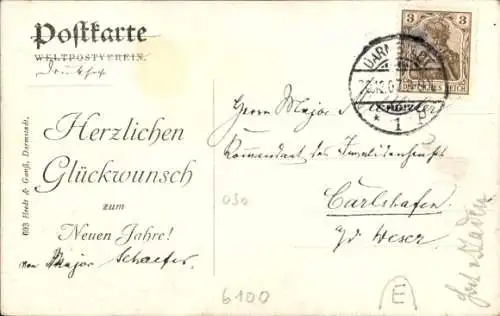 Postkarte
WELTPOSTVEREIN.
Drucksache
Herzlichen
Glückwunsch
zum
Neuen Jahre!
von Major Schaefer
693 Heeds & Ganß, Darmstadt.
3 3
DEUTSCHES REICH
DARMSTADT
* 1
Herrn Major
Kommandant des Invalidenhauses
Carlshafen
a/d Weser
030
6100
E